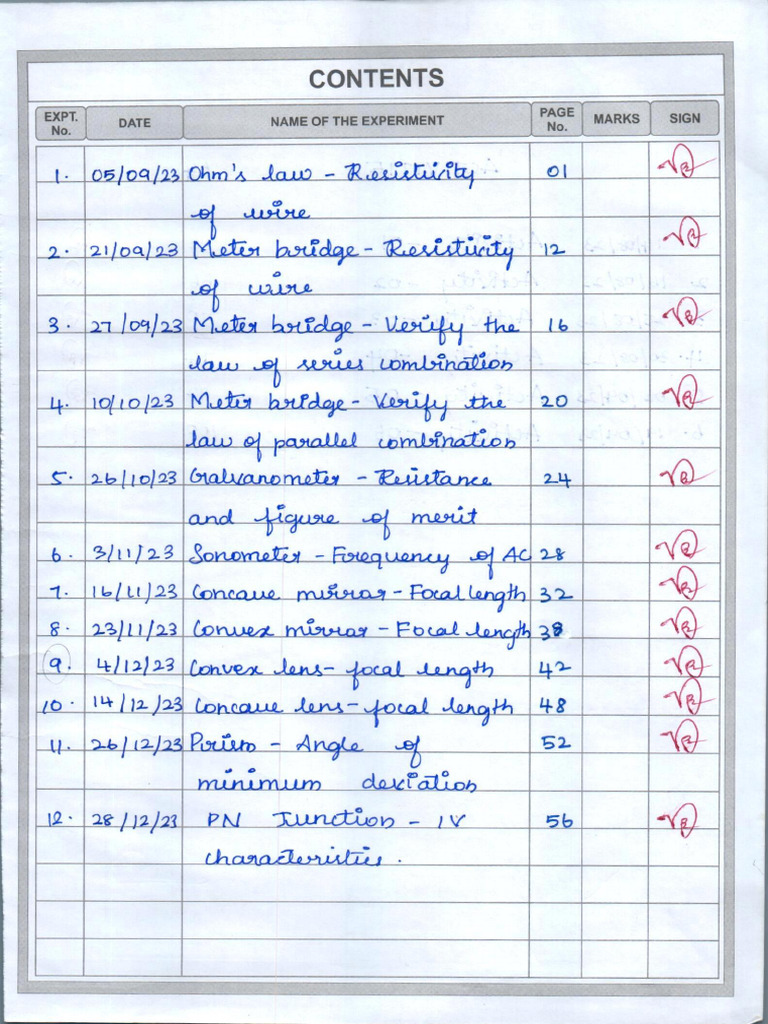 CONTENTS
EXPT. No. DATE NAME OF THE EXPERIMENT PAGE No. MARKS SIGN
1. 05/09/23 Ohm's law - Resistivity 01
of wire
2. 21/09/23 Meter bridge - Resistivity 12
of wire
3. 27/09/23 Meter bridge - Verify the 16
law of series combination
4. 10/10/23 Meter bridge - Verify the 20
law of parallel combination
5. 26/10/23 Galvanometer - Resistance 24
and figure of merit
6. 3/11/23 Sonometer - Frequency of AC 28
7. 16/11/23 Concave mirror - Focal length 32
8. 23/11/23 Convex mirror - Focal length 38
9. 4/12/23 Convex lens - focal length 42
10. 14/12/23 Concave lens - focal length 48
11. 26/12/23 Prism - Angle of 52
minimum deviation
12. 28/12/23 PN Junction - IV 56
characteristics.